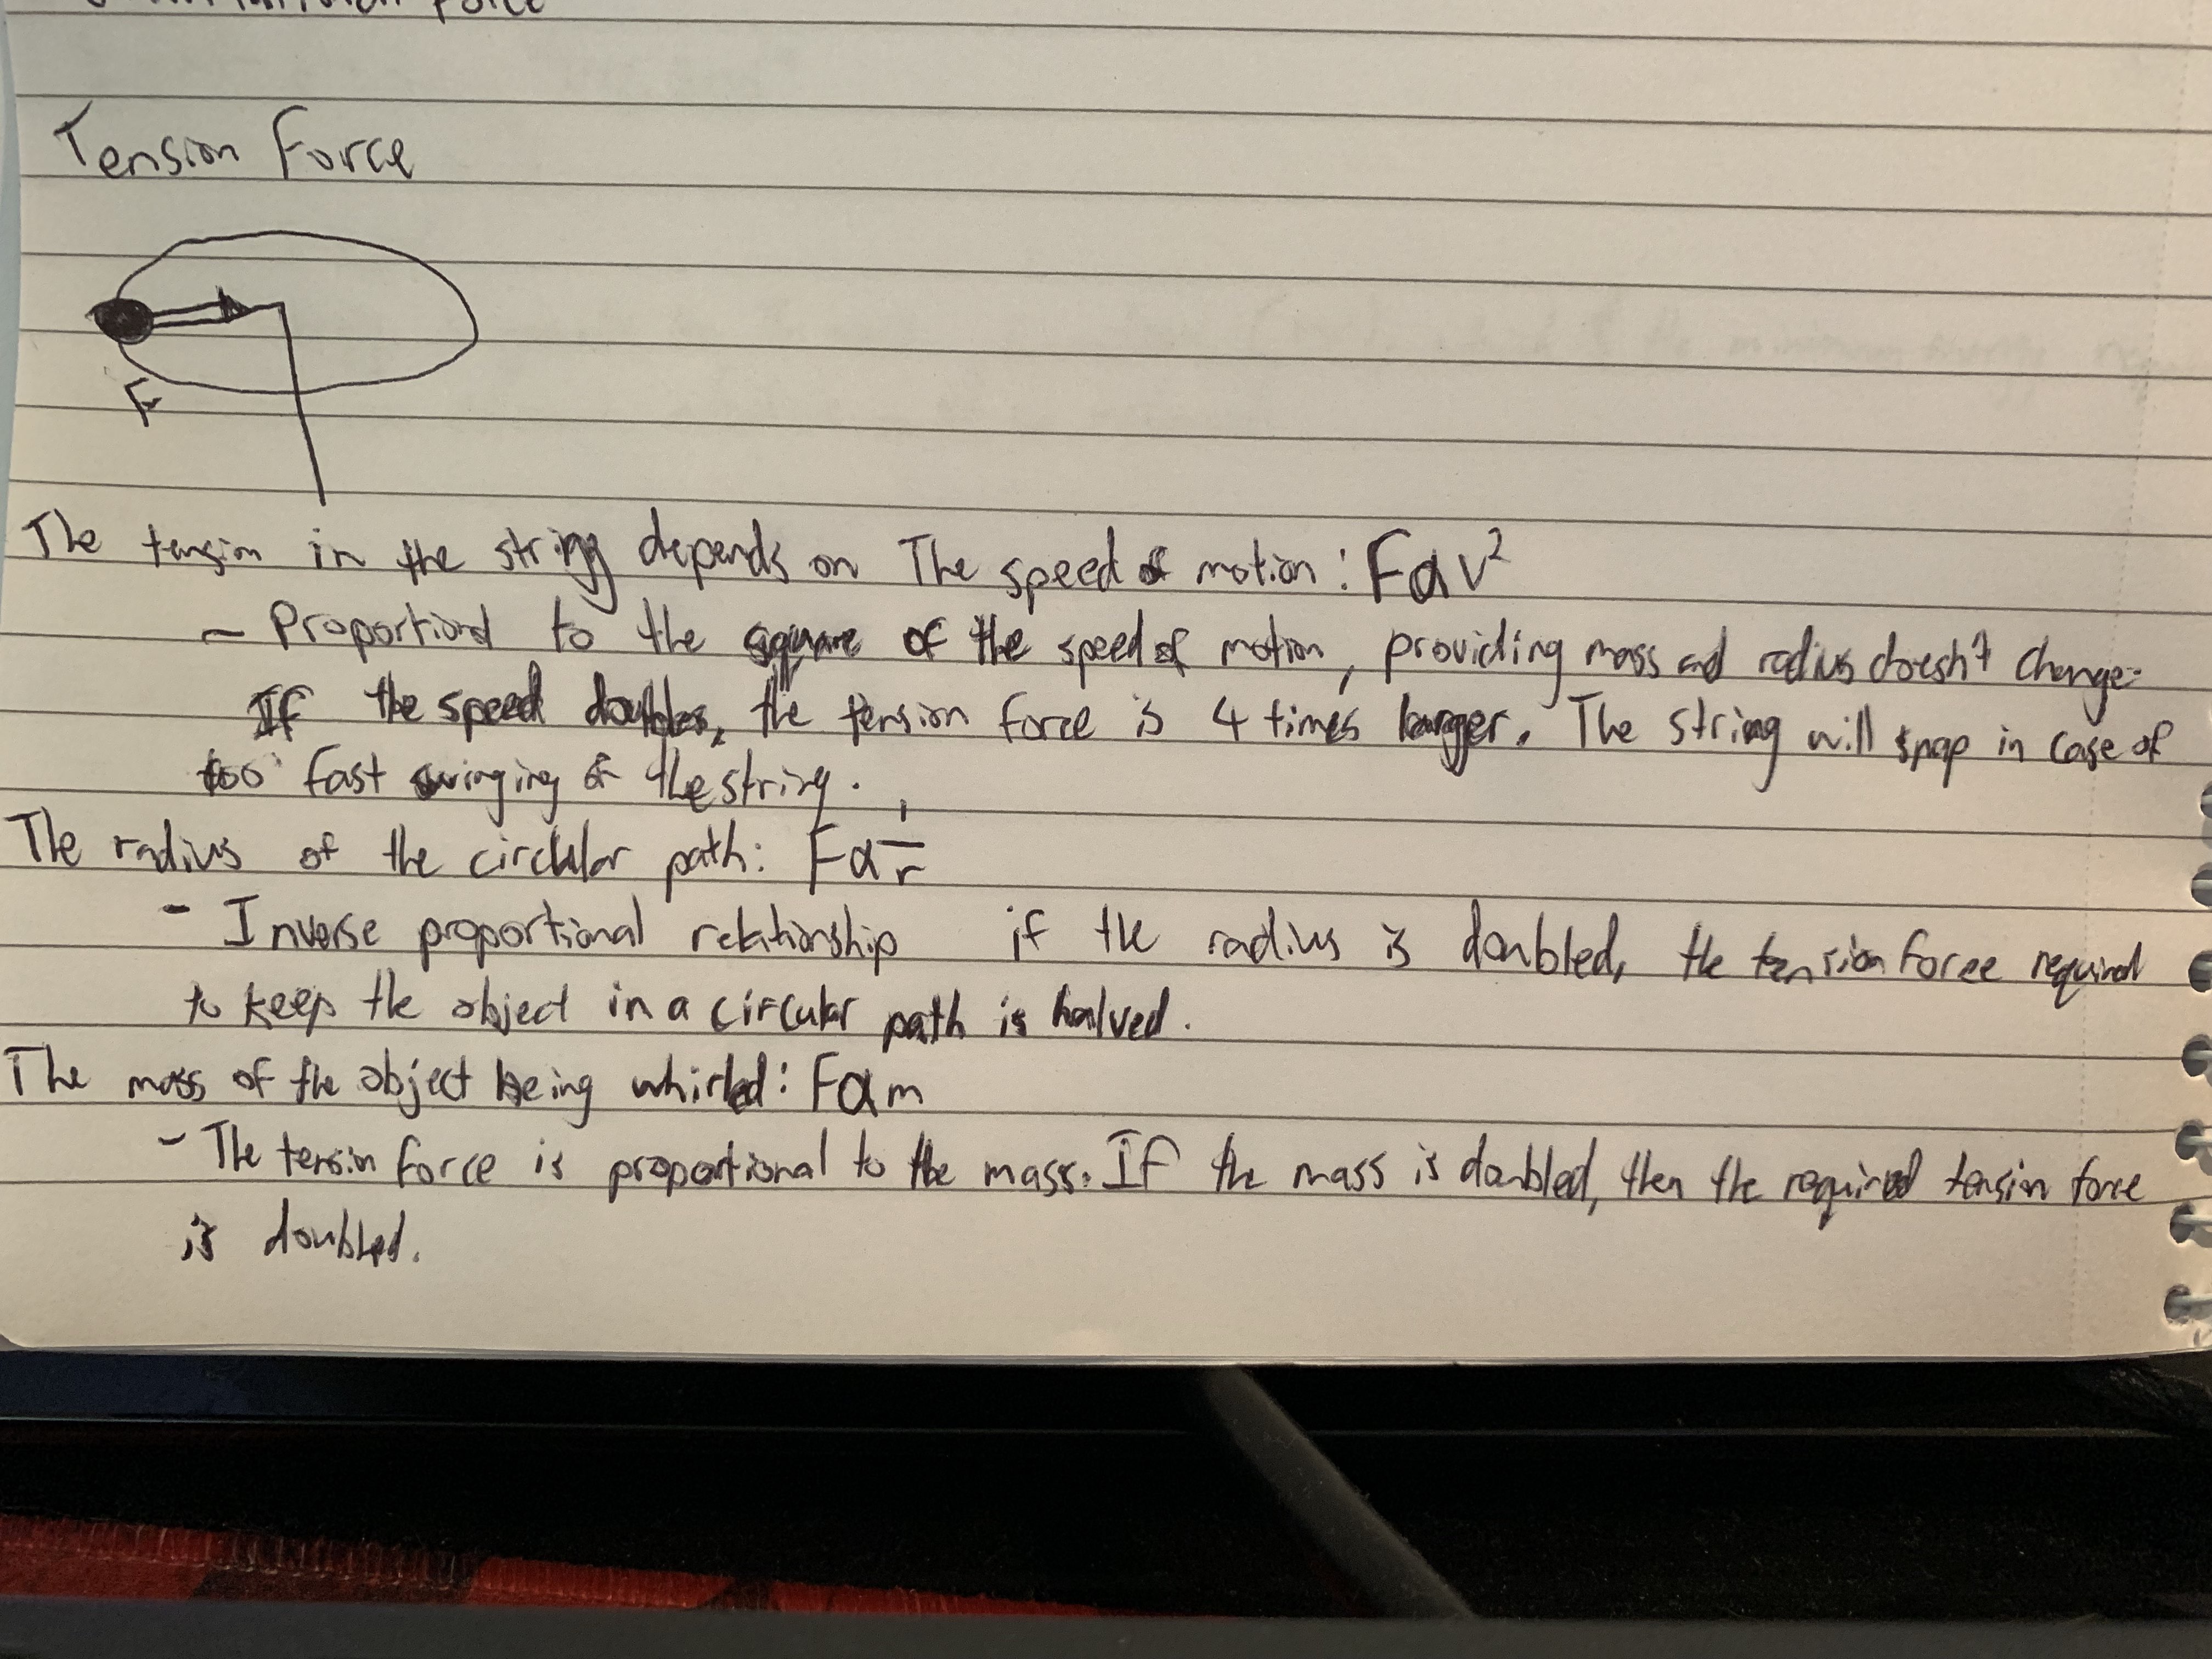 Force
Tension Force
F
The tension in the string depends on The speed of motion: F α v²
- Proportional to the square of the speed of motion, providing mass and radius doesn't change.
If the speed doubles, the tension force is 4 times larger. The string will snap in case of
too fast swinging of the string.
The radius of the circular path: F α 1/r
- Inverse proportional relationship if the radius is doubled, the tension force required
to keep the object in a circular path is halved.
The mass of the object being whirled: F α m
- The tension force is proportional to the mass. If the mass is doubled, then the required tension force
is doubled.